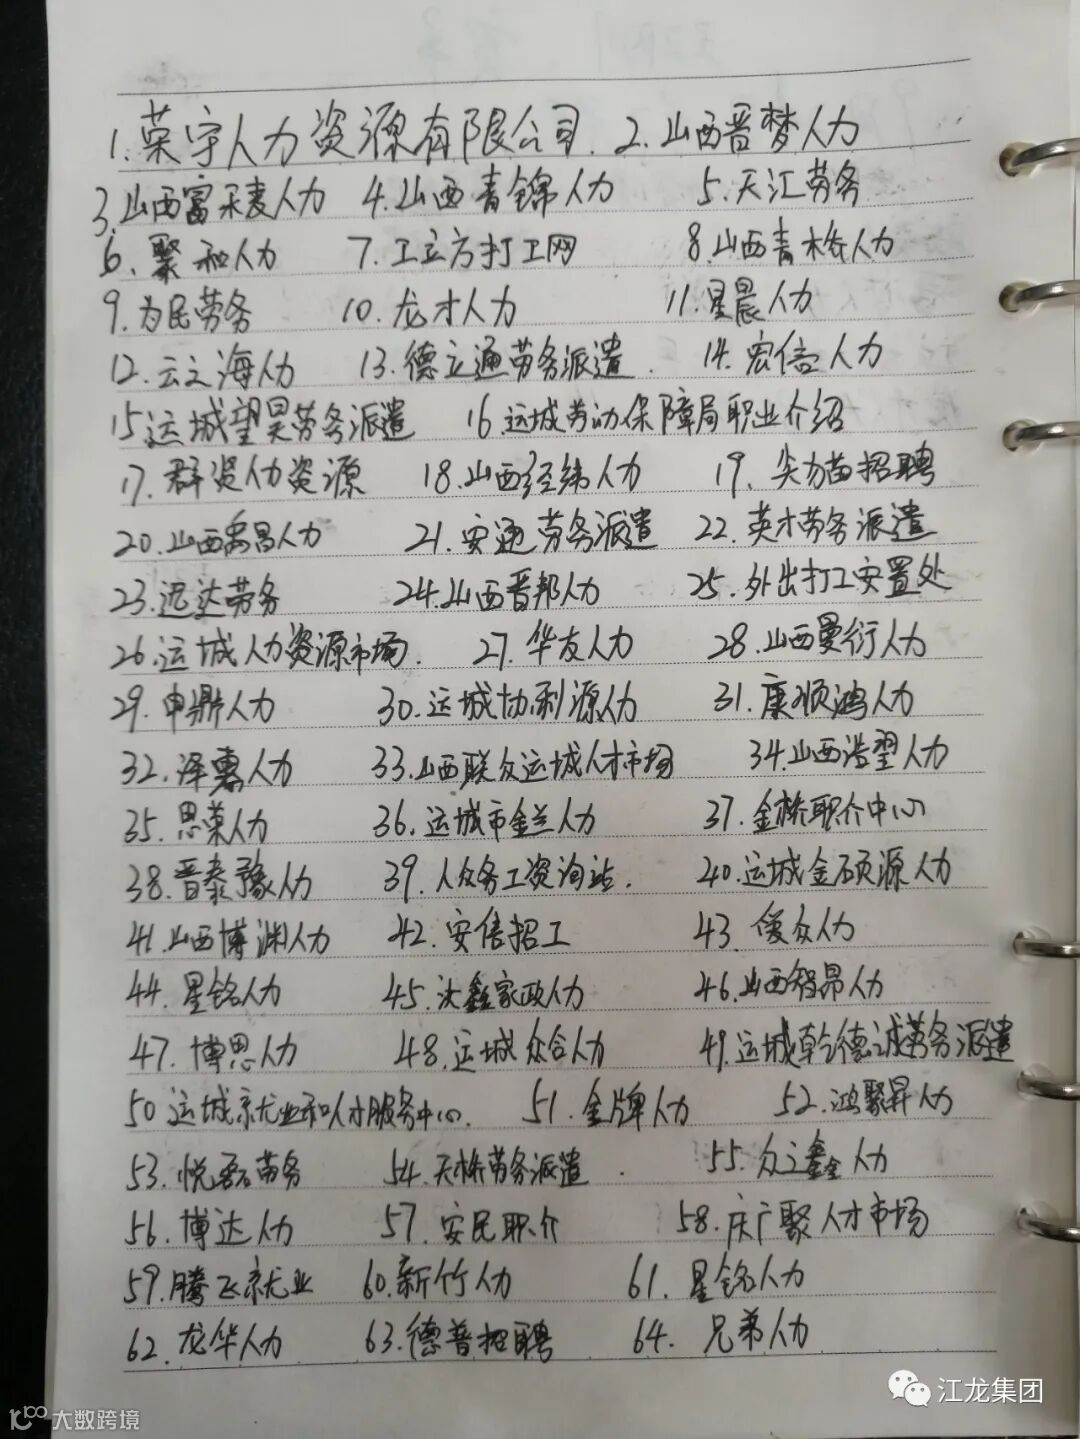 1.荣宇人力资源有限公司. 2.山西晋梦人力
3.山西富禾麦人力 4.山西青锦人力 5.天汇劳务
6.聚和人力 7.工立方打工网 8.山西青桥人力
9.为民劳务 10.龙才人力 11.星晨人力
12.云之海人力 13.德立通劳务派遣. 14.宏信人力
15运城望昊劳务派遣 16.运城劳动保障局职业介绍
17.群贤人力资源 18.山西经纬人力 19.尖力苗招聘
20.山西禹昌人力 21.安通劳务派遣 22.英才劳务派遣
23.迅达劳务 24.山西晋邦人力 25.外出打工安置处
26.运城人力资源市场. 27.华友人力 28.山西曼衍人力
29.申鼎人力 30.运城协利源人力 31.康顺鸿人力
32.泽惠人力 33.山西联众运城人才市场 34.山西浩翌人力
35.思荣人力 36.运城市金兰人力 37.金桥职介中心
38.晋泰豫人力 39.人众务工资询站. 40.运城金硕源人力
41.山西博渊人力 42.安信招工 43.优众人力
44.星铭人力 45.沃鑫家政人力 46.山西智昂人力
47.博思人力 48.运城众合人力 49.运城乾德诚劳务派遣
50运城就业和人才服务中心. 51.金牌人力 52.鸿聚昇人力
53.悦磊劳务 54.天桥劳务派遣. 55.众之鑫人力
56.博达人力 57.安民职介 58.庆广聚人才市场
59.腾飞就业 60.新竹人力 61.星铭人力
62.龙华人力 63.德普招聘 64.兄弟人力
江龙集团
大数跨境